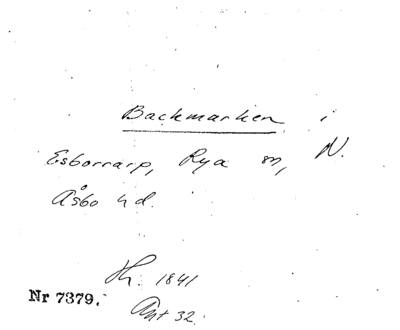 Backmarken i
Esborrarp, Rya sn, N.
Åsbo hd.
Hh. 1841
Nr 7379.
Ant 32.